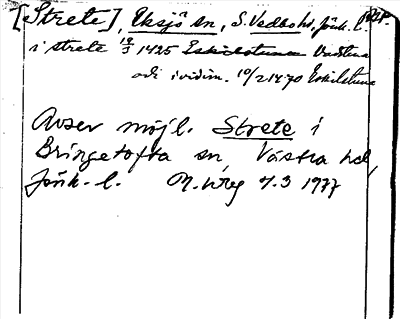 [Strete], Eksjö sn, S. Vedbo hd, Jönk. l.
i strete 19/3 1425 Eskilstuna Vadstena
odi i vidim. 10/2 1470 Eskilstuna
Avser möjl. Strete i
Bringetofta sn, Västra hd,
Jönk. l. M. Wreg 7.3 1977